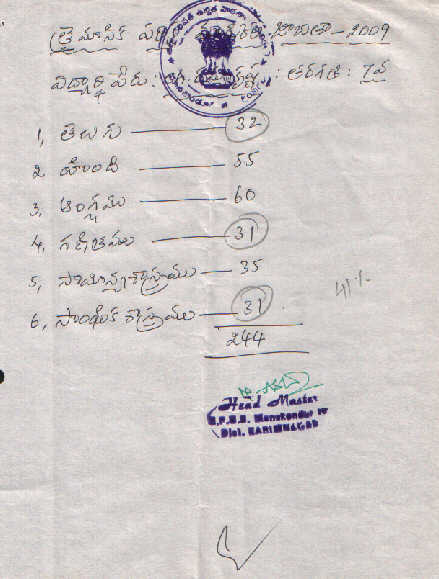 త్రైమాసిక జాబితా - 2009
విద్యార్థి పేరు. తరగతి : 7వ
1, తెలుగు — 32
2. హింది — 55
3, ఆంగ్లము — 60
4, గణితము — 31
5, సామాన్యశాస్త్రము — 35
6, సాంఘిక శాస్త్రము — 31
244
41%
Head Master
Dist. KARIMNAGAR